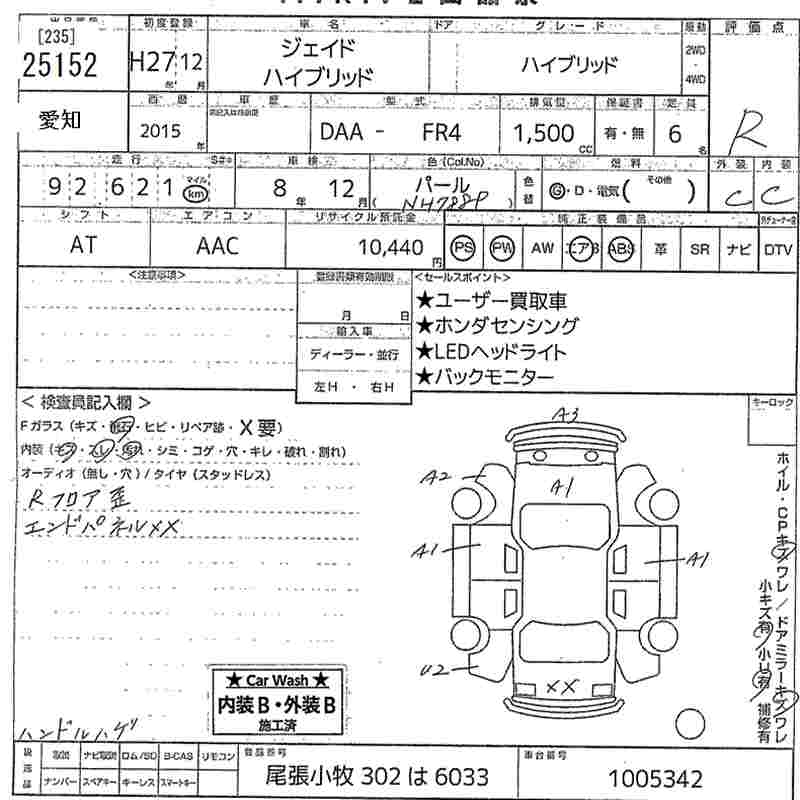 [235]
25152
初度登録
H27 12
年 月
車名
ジェイド
ハイブリッド
ドア
グレード
ハイブリッド
駆動
2WD
4WD
評価点
R
愛知
西暦
2015 年
車歴
型式
DAA - FR4
排気量
1,500 CC
保証書
有・無
定員
6 名
走行
92,621
マイル
km
S#*
車検
8 年 12 月
色(Col.No)
パール
NH788P
色替
燃料
G・D・電気( その他 )
外装
C
内装
C
シフト
AT
エアコン
AAC
リサイクル預託金
10,440 円
純正装備品
PS PW AW エアB ABS 革 SR ナビ DTV
<注意事項>
登録書類有効期限
月 日
輸入車
ディーラー・並行
左H ・ 右H
<セールスポイント>
★ユーザー買取車
★ホンダセンシング
★LEDヘッドライト
★バックモニター
< 検査員記入欄 >
Fガラス(キズ・飛石・ヒビ・リペア跡・X要)
内装(キズ・スレ・汚れ・シミ・コゲ・穴・キレ・破れ・割れ)
オーディオ(無し・穴)/タイヤ(スタッドレス)
Rフロア歪
エンドパネルXX
キーロック
A3
A2
A1
A1
A1
U2
XX
ホイル・CPキズワレ/ドアミラーキズワレ
小キズ有/小U有 補修有
★ Car Wash ★
内装B・外装B
施工済
ハンドルハゲ
取説 ナビ取説 ロム/SD B-CAS リモコン
ナンバー スペアキー キーレス スマートキー
登録番号
尾張小牧 302 は 6033
車台番号
1005342